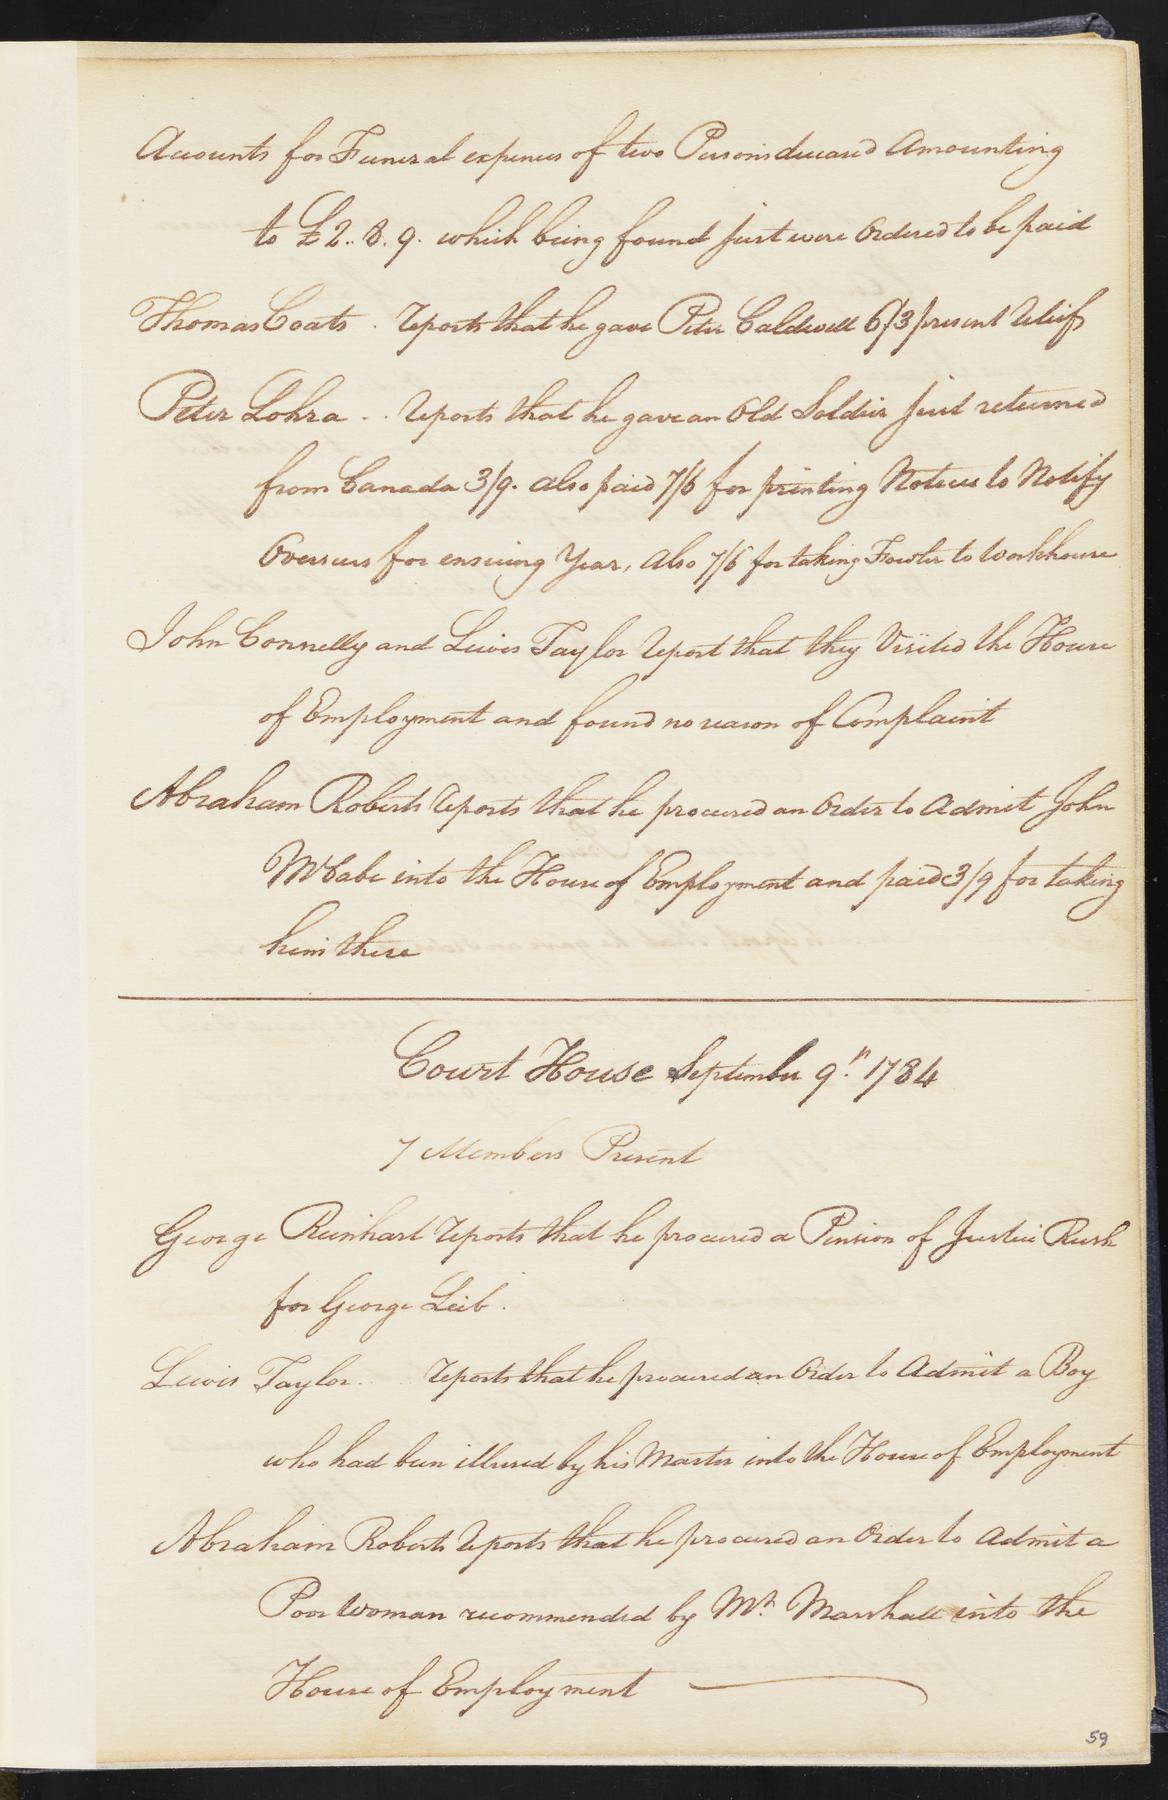 Accounts for Funeral expences of two Persons deceased Amounting
to £2..8.9. which being found just were Ordered to be paid
Thomas Coats . reports that he gave Peter Caldwell 6/3 present relief
Peter Lohra . . reports that he gave an Old Soldier just returned
from Canada 3/9. also paid 7/6 for printing Notices to Notify
Overseers for ensuing Year, also 7/6 for taking Fowler to Workhouse
John Connelly and Lewis Taylor report that they Visited the House
of Employment and found no reason of Complaint
Abraham Roberts reports that he procured an Order to Admit John
McCabe into the House of Employment and paid 3/9 for taking
him there
Court House September 9th 1784
7 Members Present
George Reinhart reports that he procured a Pension of Justice Rush
for George Leib.
Lewis Taylor. reports that he procured an Order to Admit a Boy
who had been illused by his Master into the House of Employment
Abraham Roberts reports that he procured an Order to Admit a
Poor Woman recommended by Mr. Marshall into the
House of Employment
59